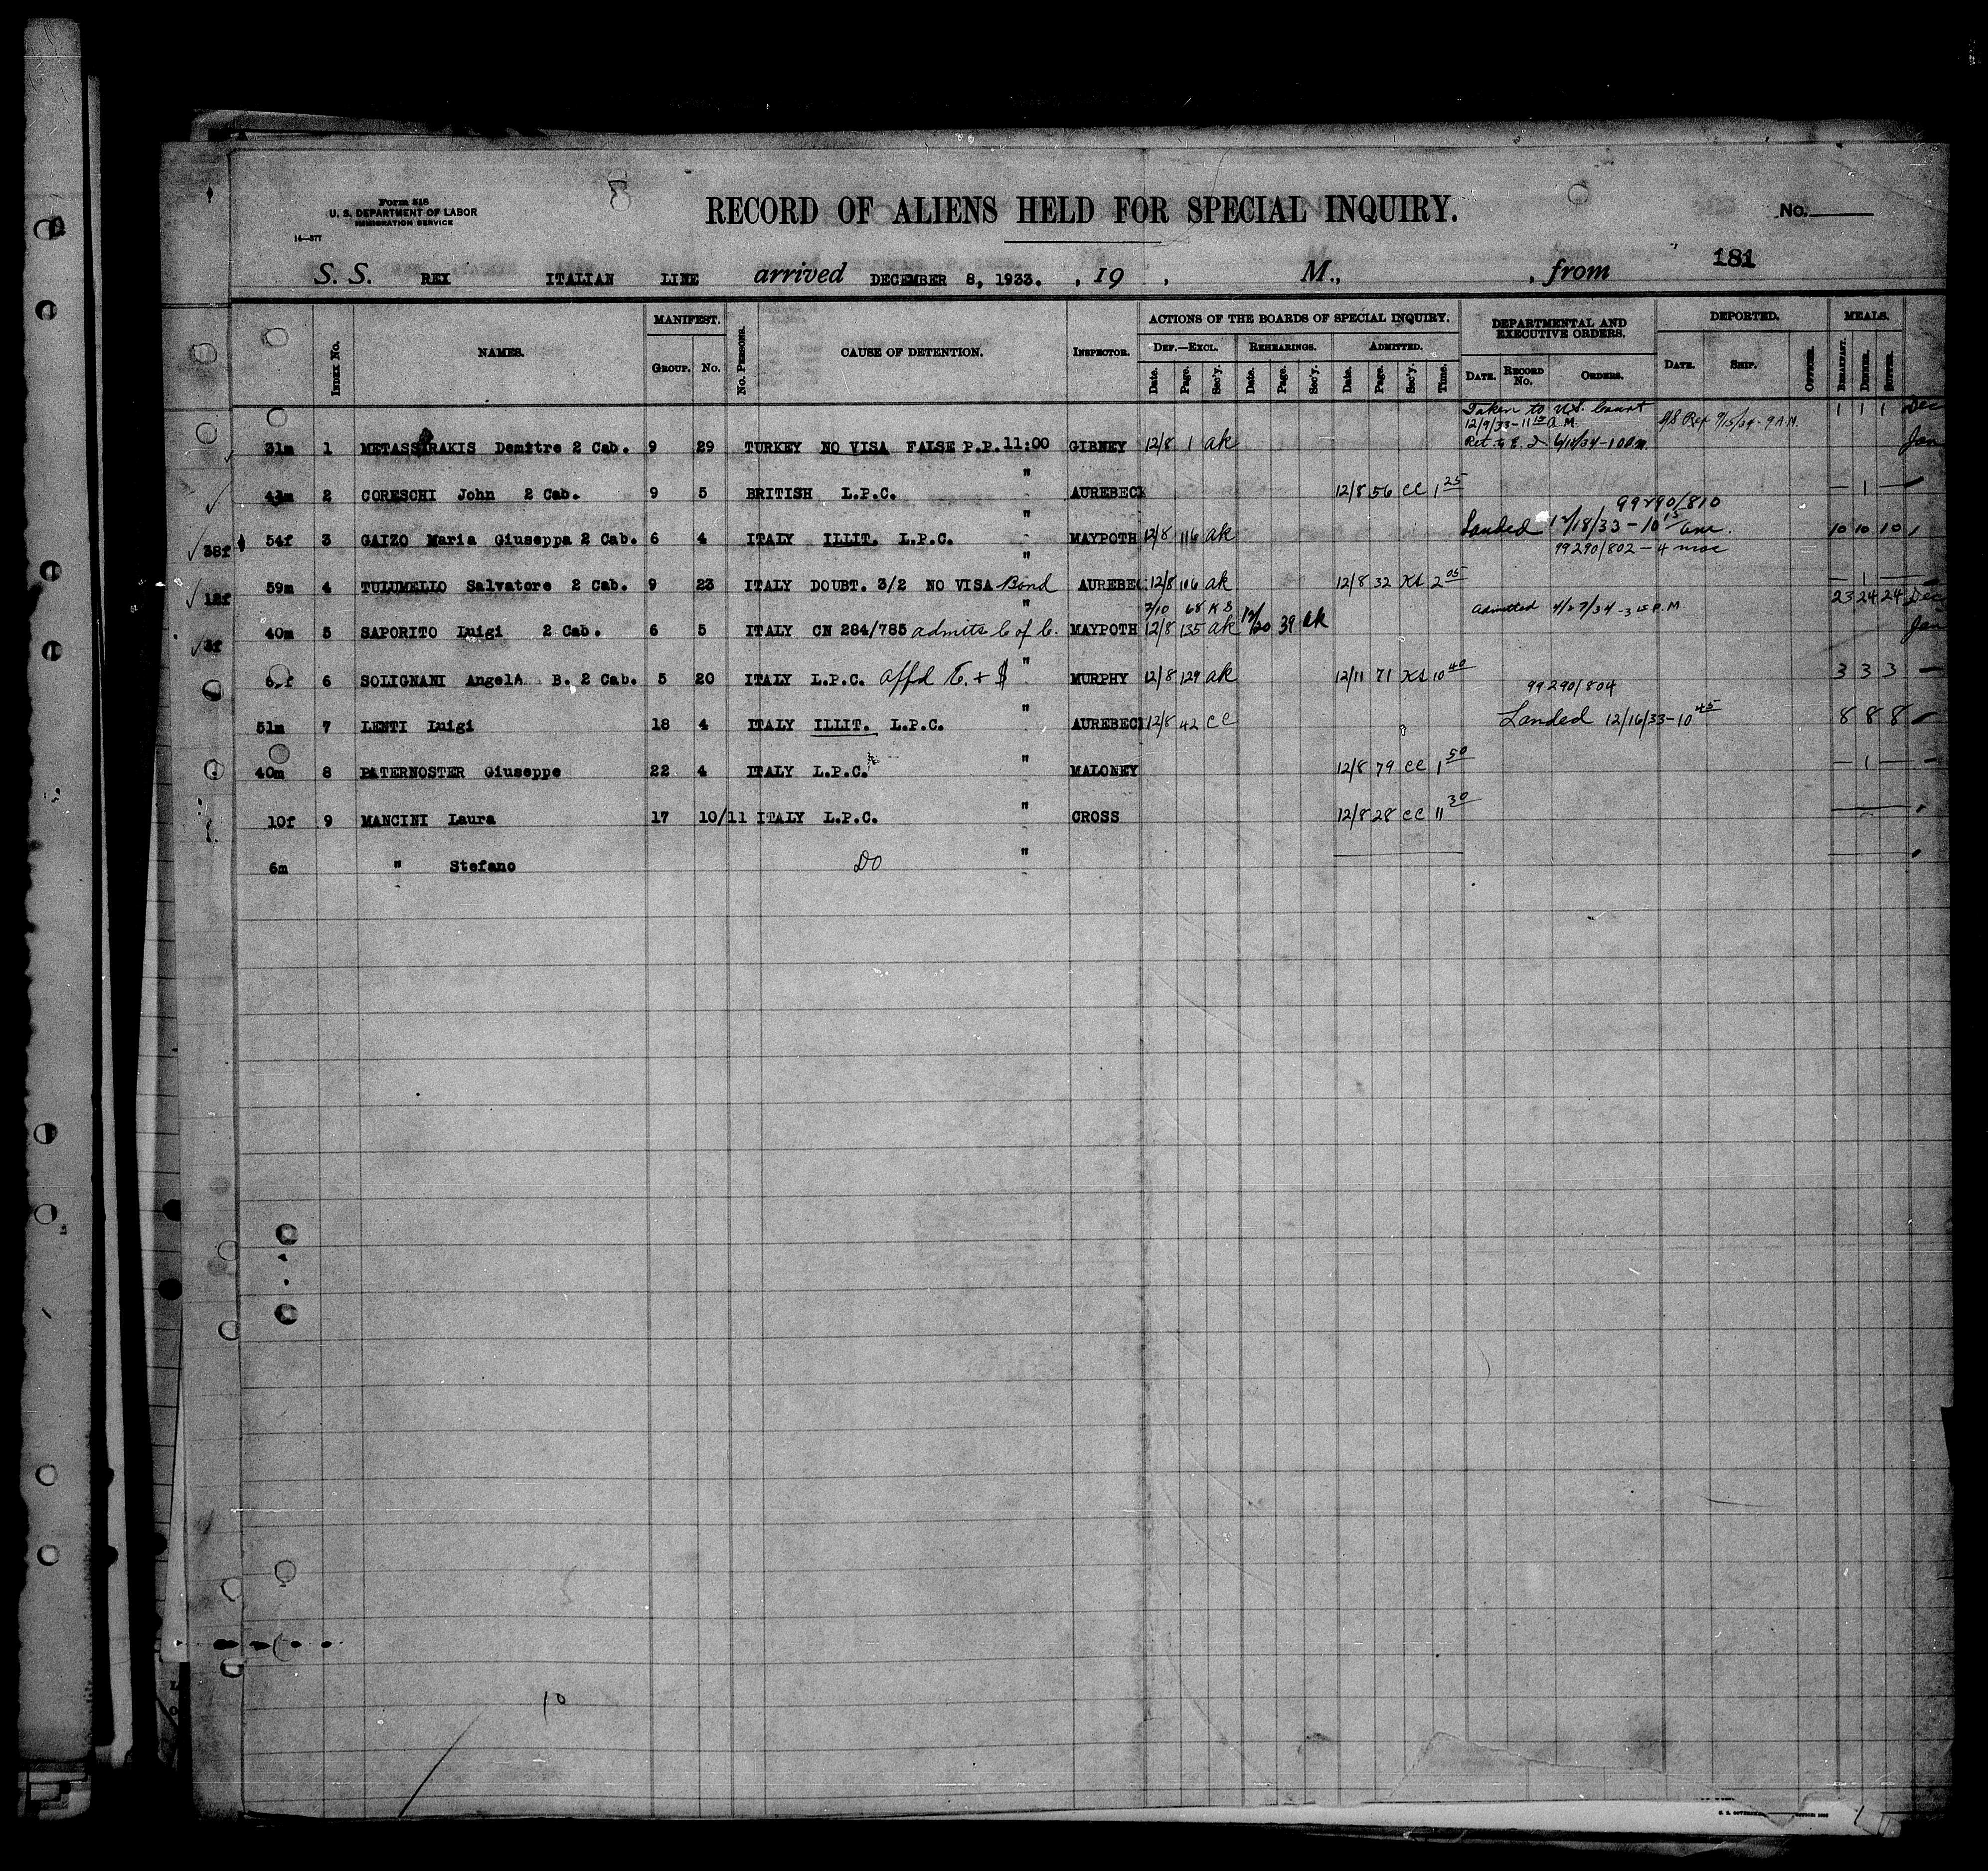 Form 518
U. S. DEPARTMENT OF LABOR
IMMIGRATION SERVICE
14—577
RECORD OF ALIENS HELD FOR SPECIAL INQUIRY.
No.
181
S. S. REX ITALIAN LINE arrived DECEMBER 8, 1933. , 19 , M., , from
INDEX NO. NAMES. MANIFEST. GROUP. NO. NO. PERSONS. CAUSE OF DETENTION. INSPECTOR.
ACTIONS OF THE BOARDS OF SPECIAL INQUIRY. DEF.—EXCL. Date. Page. Sec'y. REHEARINGS. Date. Page. Sec'y. ADMITTED. Date. Page. Sec'y. Time.
DEPARTMENTAL AND EXECUTIVE ORDERS. DATE. RECORD NO. ORDERS. DEPORTED. DATE. SHIP. OFFICER. MEALS. BREAKFAST. DINNER. SUPPER.
Taken to U.S. Court
12/9/33-11 A.M. 9 A.M. 1 1 1 Dec
31m 1 METASSARAKIS Demitre 2 Cab. 9 29 TURKEY NO VISA FALSE P.P. 11:00 GIBNEY 12/8 1 ak Jan
43m 2 CORESCHI John 2 Cab. 9 5 BRITISH L.P.C. " AUREBECK 12/8 56 cc 1 25 — 1 —
99290/810
38f 54f 3 GAIZO Maria Giuseppa 2 Cab. 6 4 ITALY ILLIT. L.P.C. " MAYPOTH 12/8 116 ak Landed 12/18/33-10 15 am. 10 10 10
99290/802 - 4 mos
12f 59m 4 TULUMELLO Salvatore 2 Cab. 9 23 ITALY DOUBT. 3/2 NO VISA Bond " AUREBEC 12/8 106 ak 12/8 32 KS 2 05 — 1 —
68 KS Admitted 23 24 24 Dec
3f 40m 5 SAPORITO Luigi 2 Cab. 6 5 ITALY CN 284/785 admits C of C. " MAYPOTH 12/8 135 ak 12/20 39 ak Jan
6 SOLIGNANI AngelA B. 2 Cab. 5 20 ITALY L.P.C. affd T. + $ " MURPHY 12/8 129 ak 12/11 71 KS 10 40 3 3 3 —
99290/804
51m 7 LENTI Luigi 18 4 ITALY ILLIT. L.P.C. " AUREBECK 12/8 42 cc Landed 12/16/33-10 45 8 8 8
40m 8 PATERNOSTER Giuseppe 22 4 ITALY L.P.C. " MALONEY 12/8 79 cc 1 50 — 1 —
10f 9 MANCINI Laura 17 10/11 ITALY L.P.C. " CROSS 12/8 28 cc 11 30
6m " Stefano DO "
10